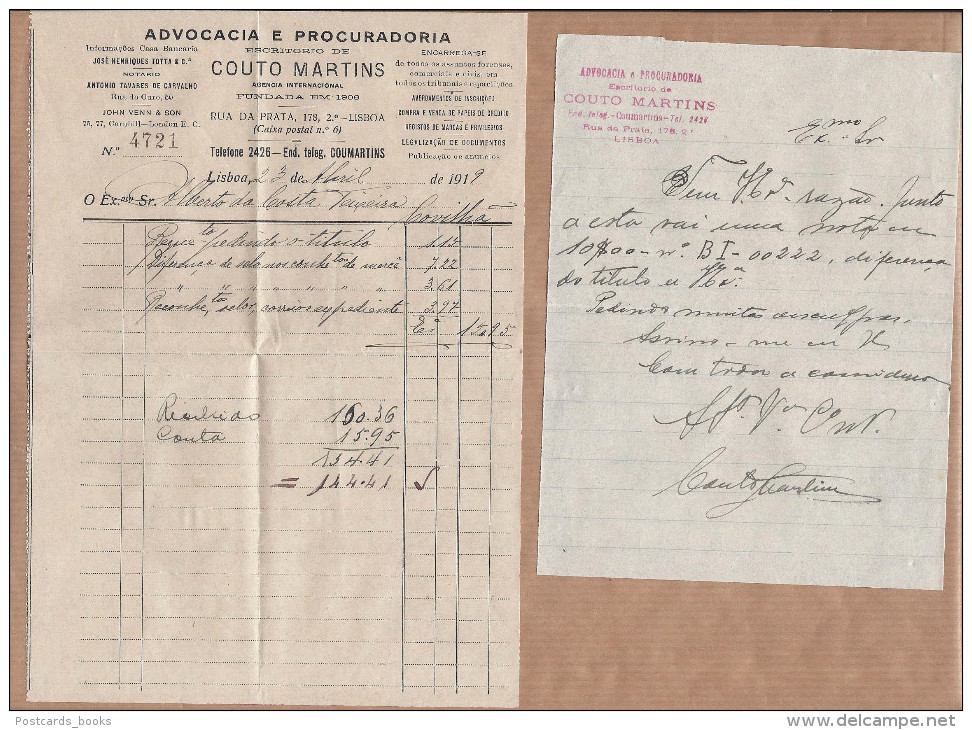 ADVOCACIA E PROCURADORIA
Informações Casa Bancaria
JOSÉ HENRIQUES TOTTA & C.ª
NOTARIO
ANTONIO TAVARES DE CARVALHO
Rua do Ouro,
JOHN VENN & SON
75, 77, Cornhill—London E. C.
N.º 4721
ESCRITORIO DE
COUTO MARTINS
AGENCIA INTERNACIONAL
FUNDADA EM 1906
RUA DA PRATA, 178, 2.º—LISBOA
(Caixa postal n.º 6)
Telefone 2426—End. teleg. COUMARTINS
ENCARREGA-SE
de todos os assuntos forenses,
comerciais e civis, em
todos os tribunais e repartições
AVERBAMENTOS DE INSCRIÇÕES
COMPRA E VENDA DE PAPEIS DE CREDITO
REGISTOS DE MARCAS E PRIVILEGIOS
LEGALIZAÇÃO DE DOCUMENTOS
Publicação de anuncios
Lisboa, 23 de Abril de 1919
O Ex.mo Sr. Alberto da Costa Teixeira
Covilhã
Requer.to pedindo o titulo 1.15
Diferença de selo nos conhe.tos de marca 7.22
" " " " " " 3.61
Reconhe.to selos, correios e expediente 3.97
E.º 15.95
Recebido 160.36
Conta 15.95
134.41
= 144.41 ✓
ADVOCACIA e PROCURADORIA
Escritorio de
COUTO MARTINS
End. teleg.-Coumartins-Tel. 2426
Rua da Prata, 178, 2.º
LISBOA
Ex.mo Sr
Tem V.Ex.ª razão. Junto
a esta vai uma nota de
10$00 - nº. BI-00222, diferença
do titulo a V.Ex.ª
Pedindo muitas desculpas,
Assino-me de V.
Com toda a consideração
Couto Martins